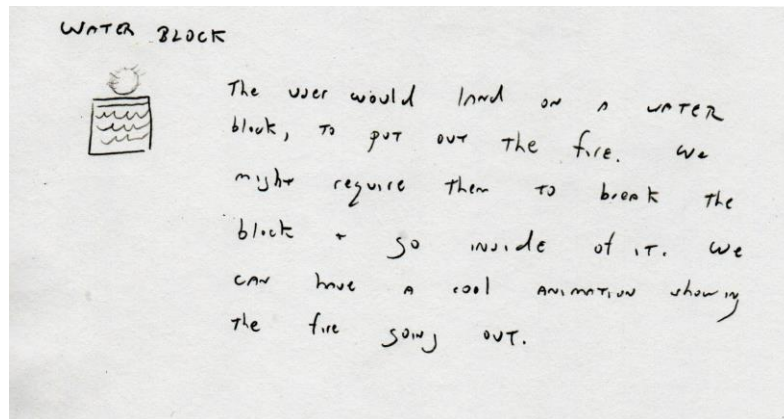 WATER BLOCK
The user would land on a WATER
block, to put out the fire. We
might require them to break the
block + go inside of it. We
can have a cool animation showing
the fire going out.